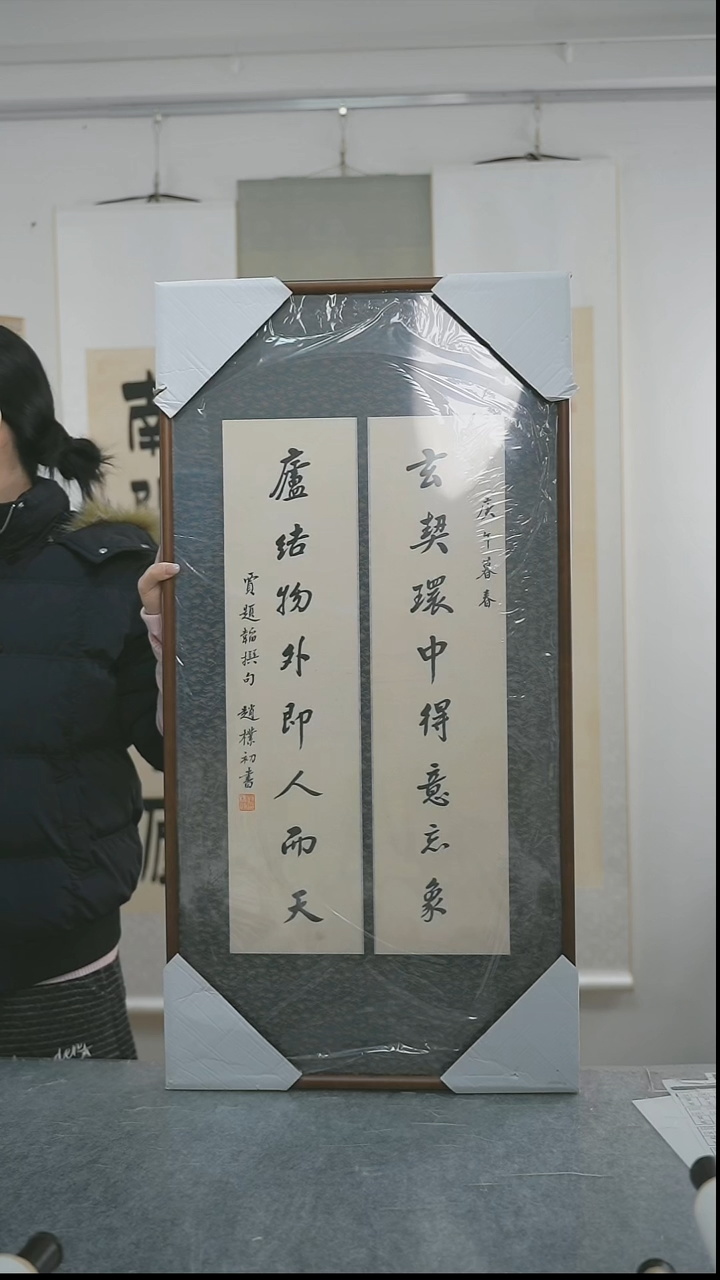 庚午暮春
玄契環中得意忘象
廬結物外即人而天
賈題韜撰句 趙樸初書
南